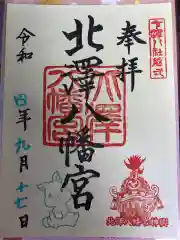 奉拝
北澤八幡宮
北澤八幡宮
令和四年九月十七日